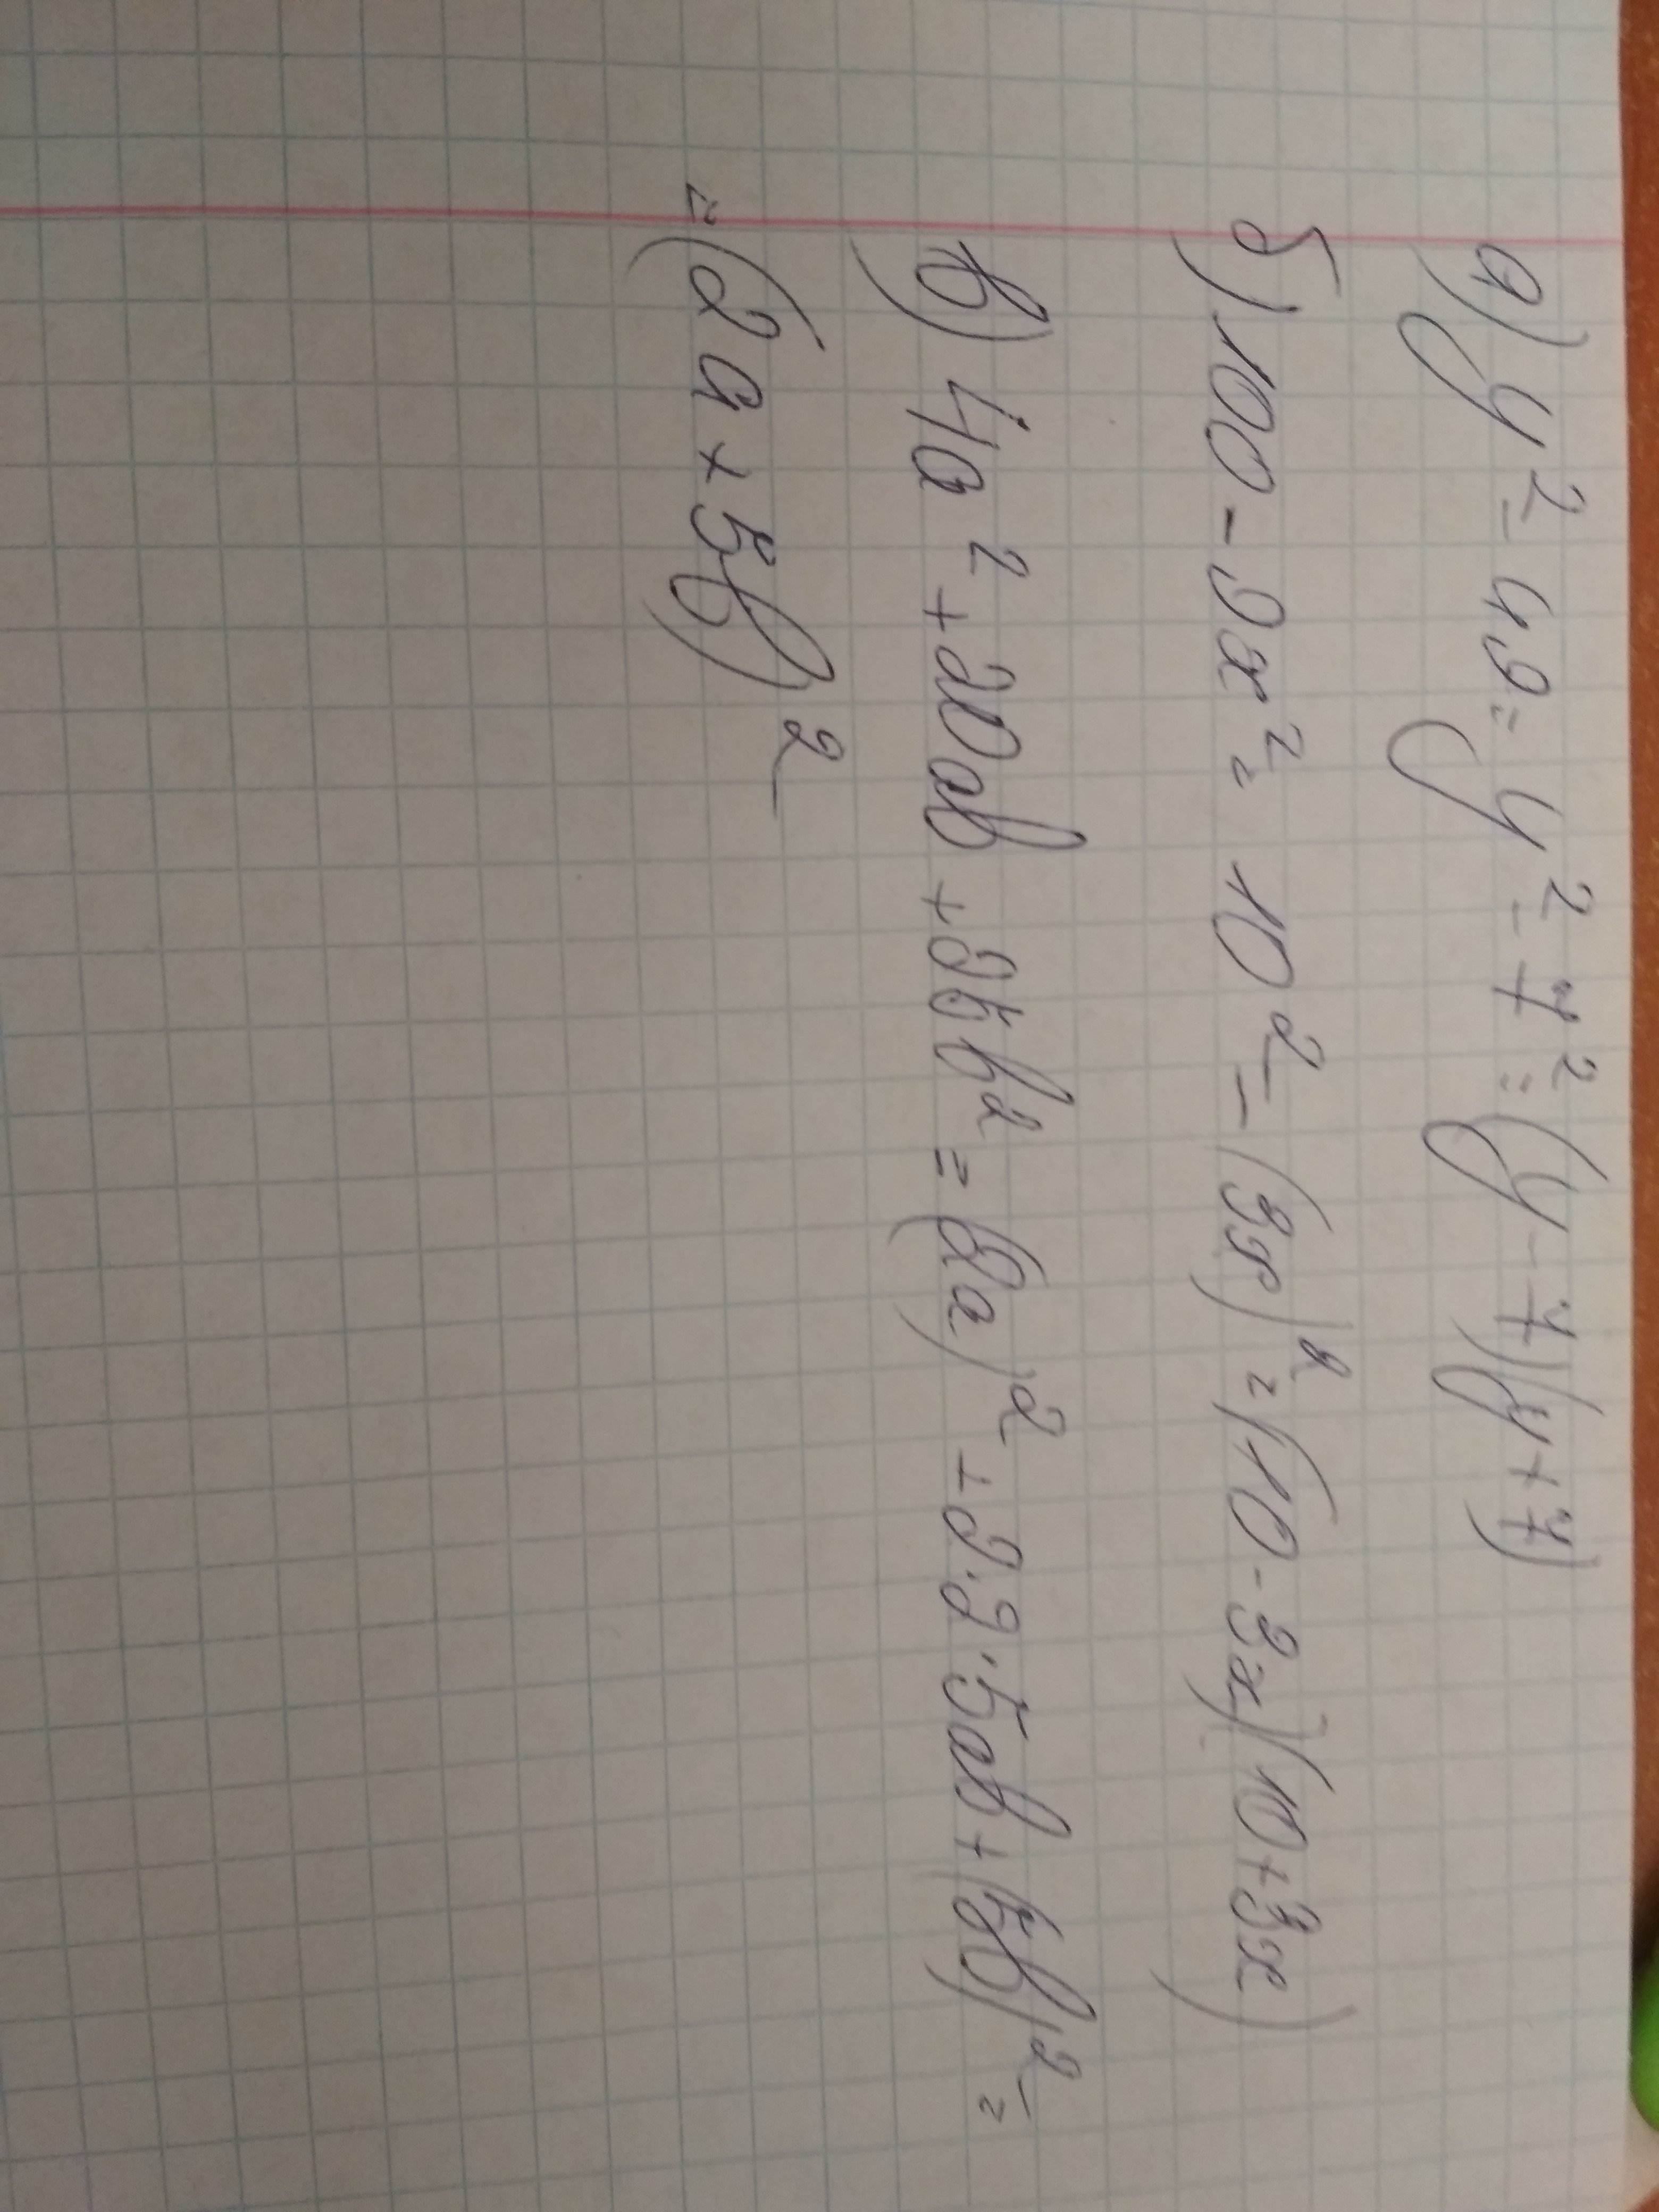 а) y² - 49 = y² - 7² = (y - 7)(y + 7)
б) 100 - 9x² = 10² - (3x)² = (10 - 3x)(10 + 3x)
в) 4a² + 20ab + 25b² = (2a)² + 2·2·5ab + (5b)² =
= (2a + 5b)²